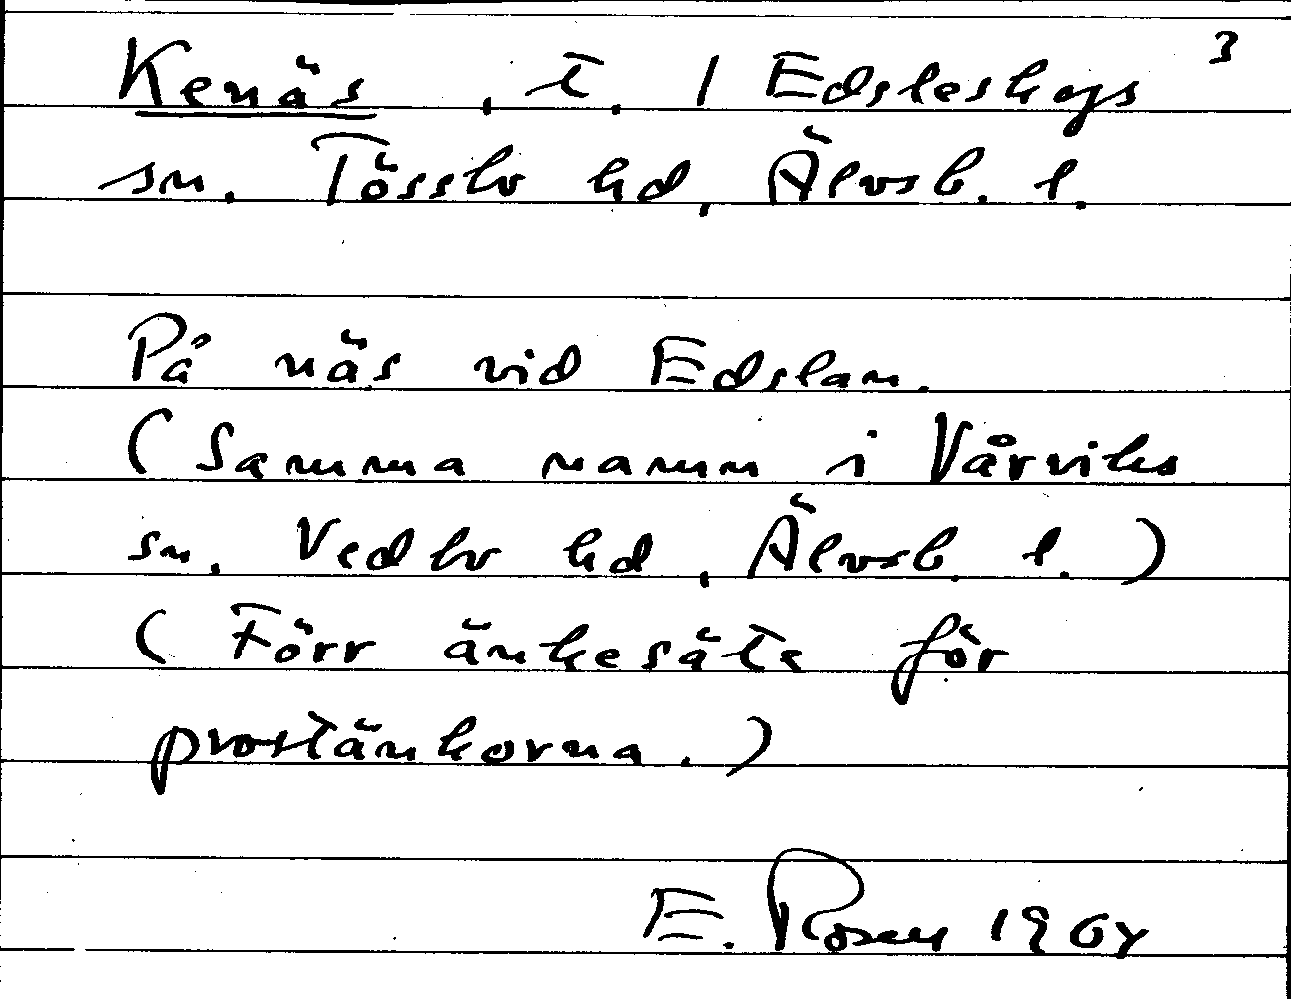 3
Kenäs, t. i Edsleskogs
sn. Tössbo hd, Älvsb. l.
På näs vid Edslan.
(Samma namn i Vårviks
sn. Vedbo hd, Älvsb. l.)
(Förr änkesäte för
prostänkorna.)
E. Rosen